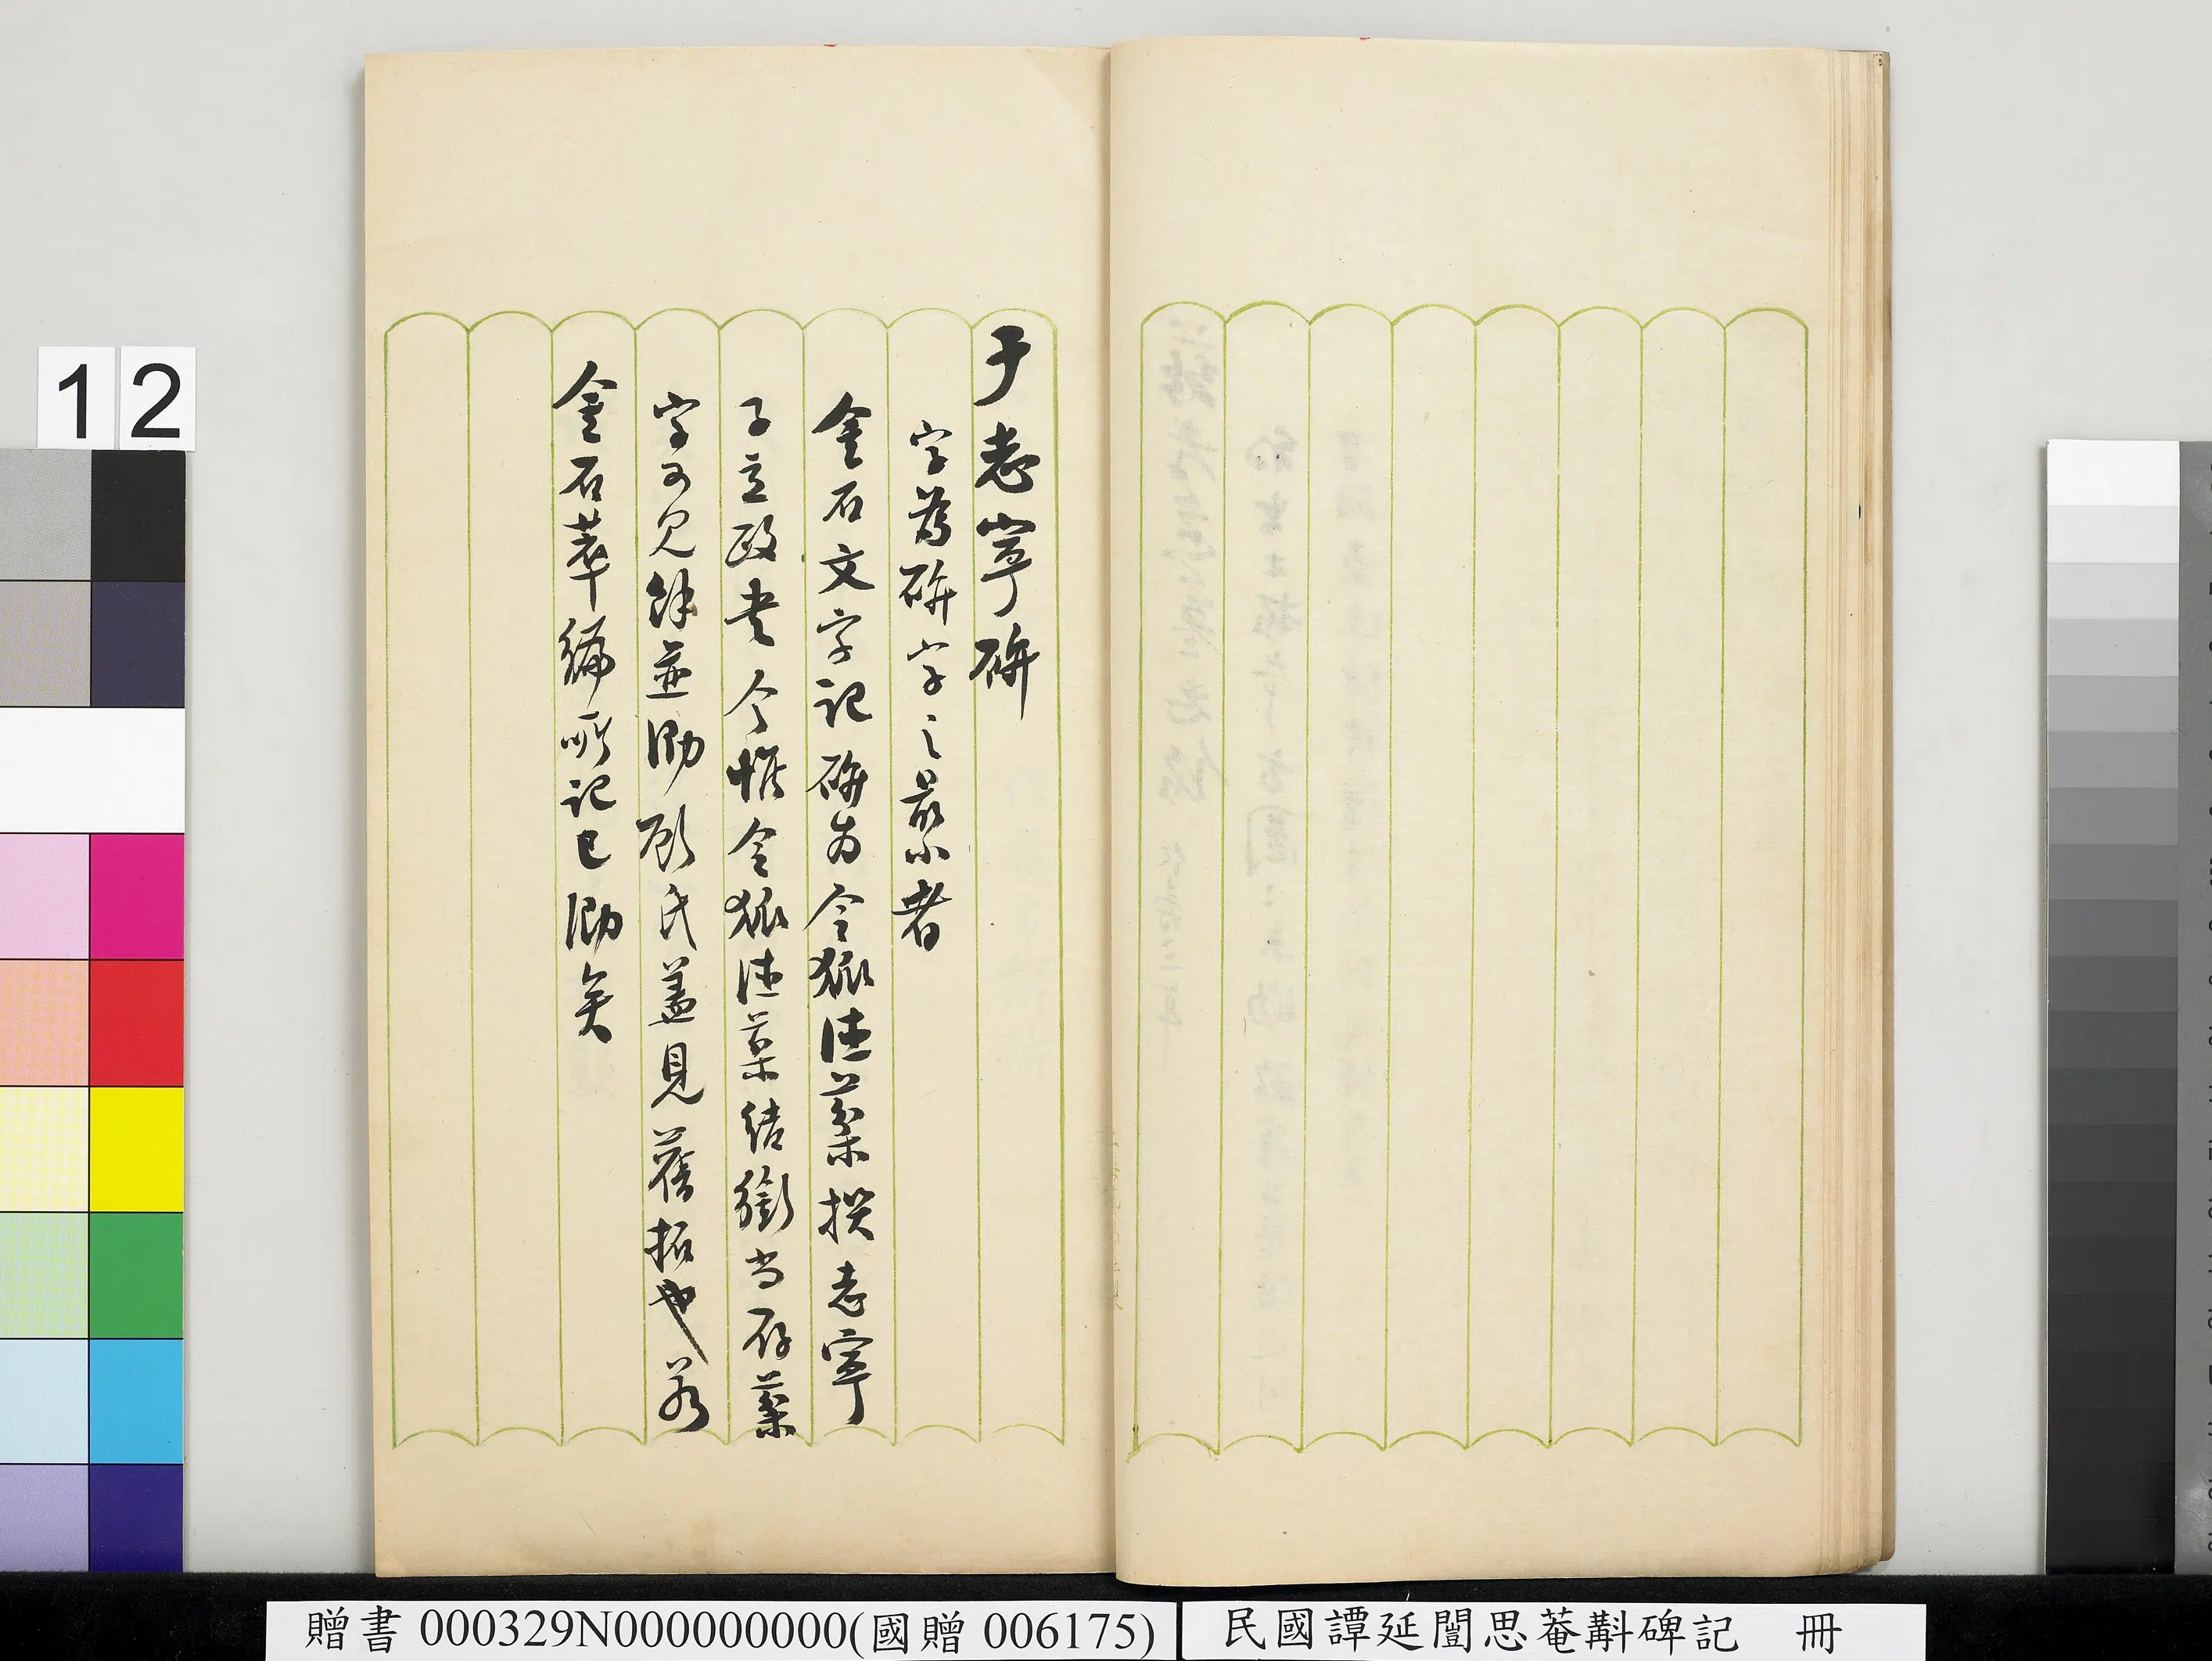 于志寧碑
字為碑字之最小者
金石文字記碑为令狐德棻撰志寧
子立政書今惟令狐德棻結銜尚存棻
字可見餘並泐顧氏蓋見舊拓也若
金石萃編所記已泐矣
12
贈書 000329N000000000(國贈 006175)
民國譚延闓思菴斠碑記 冊